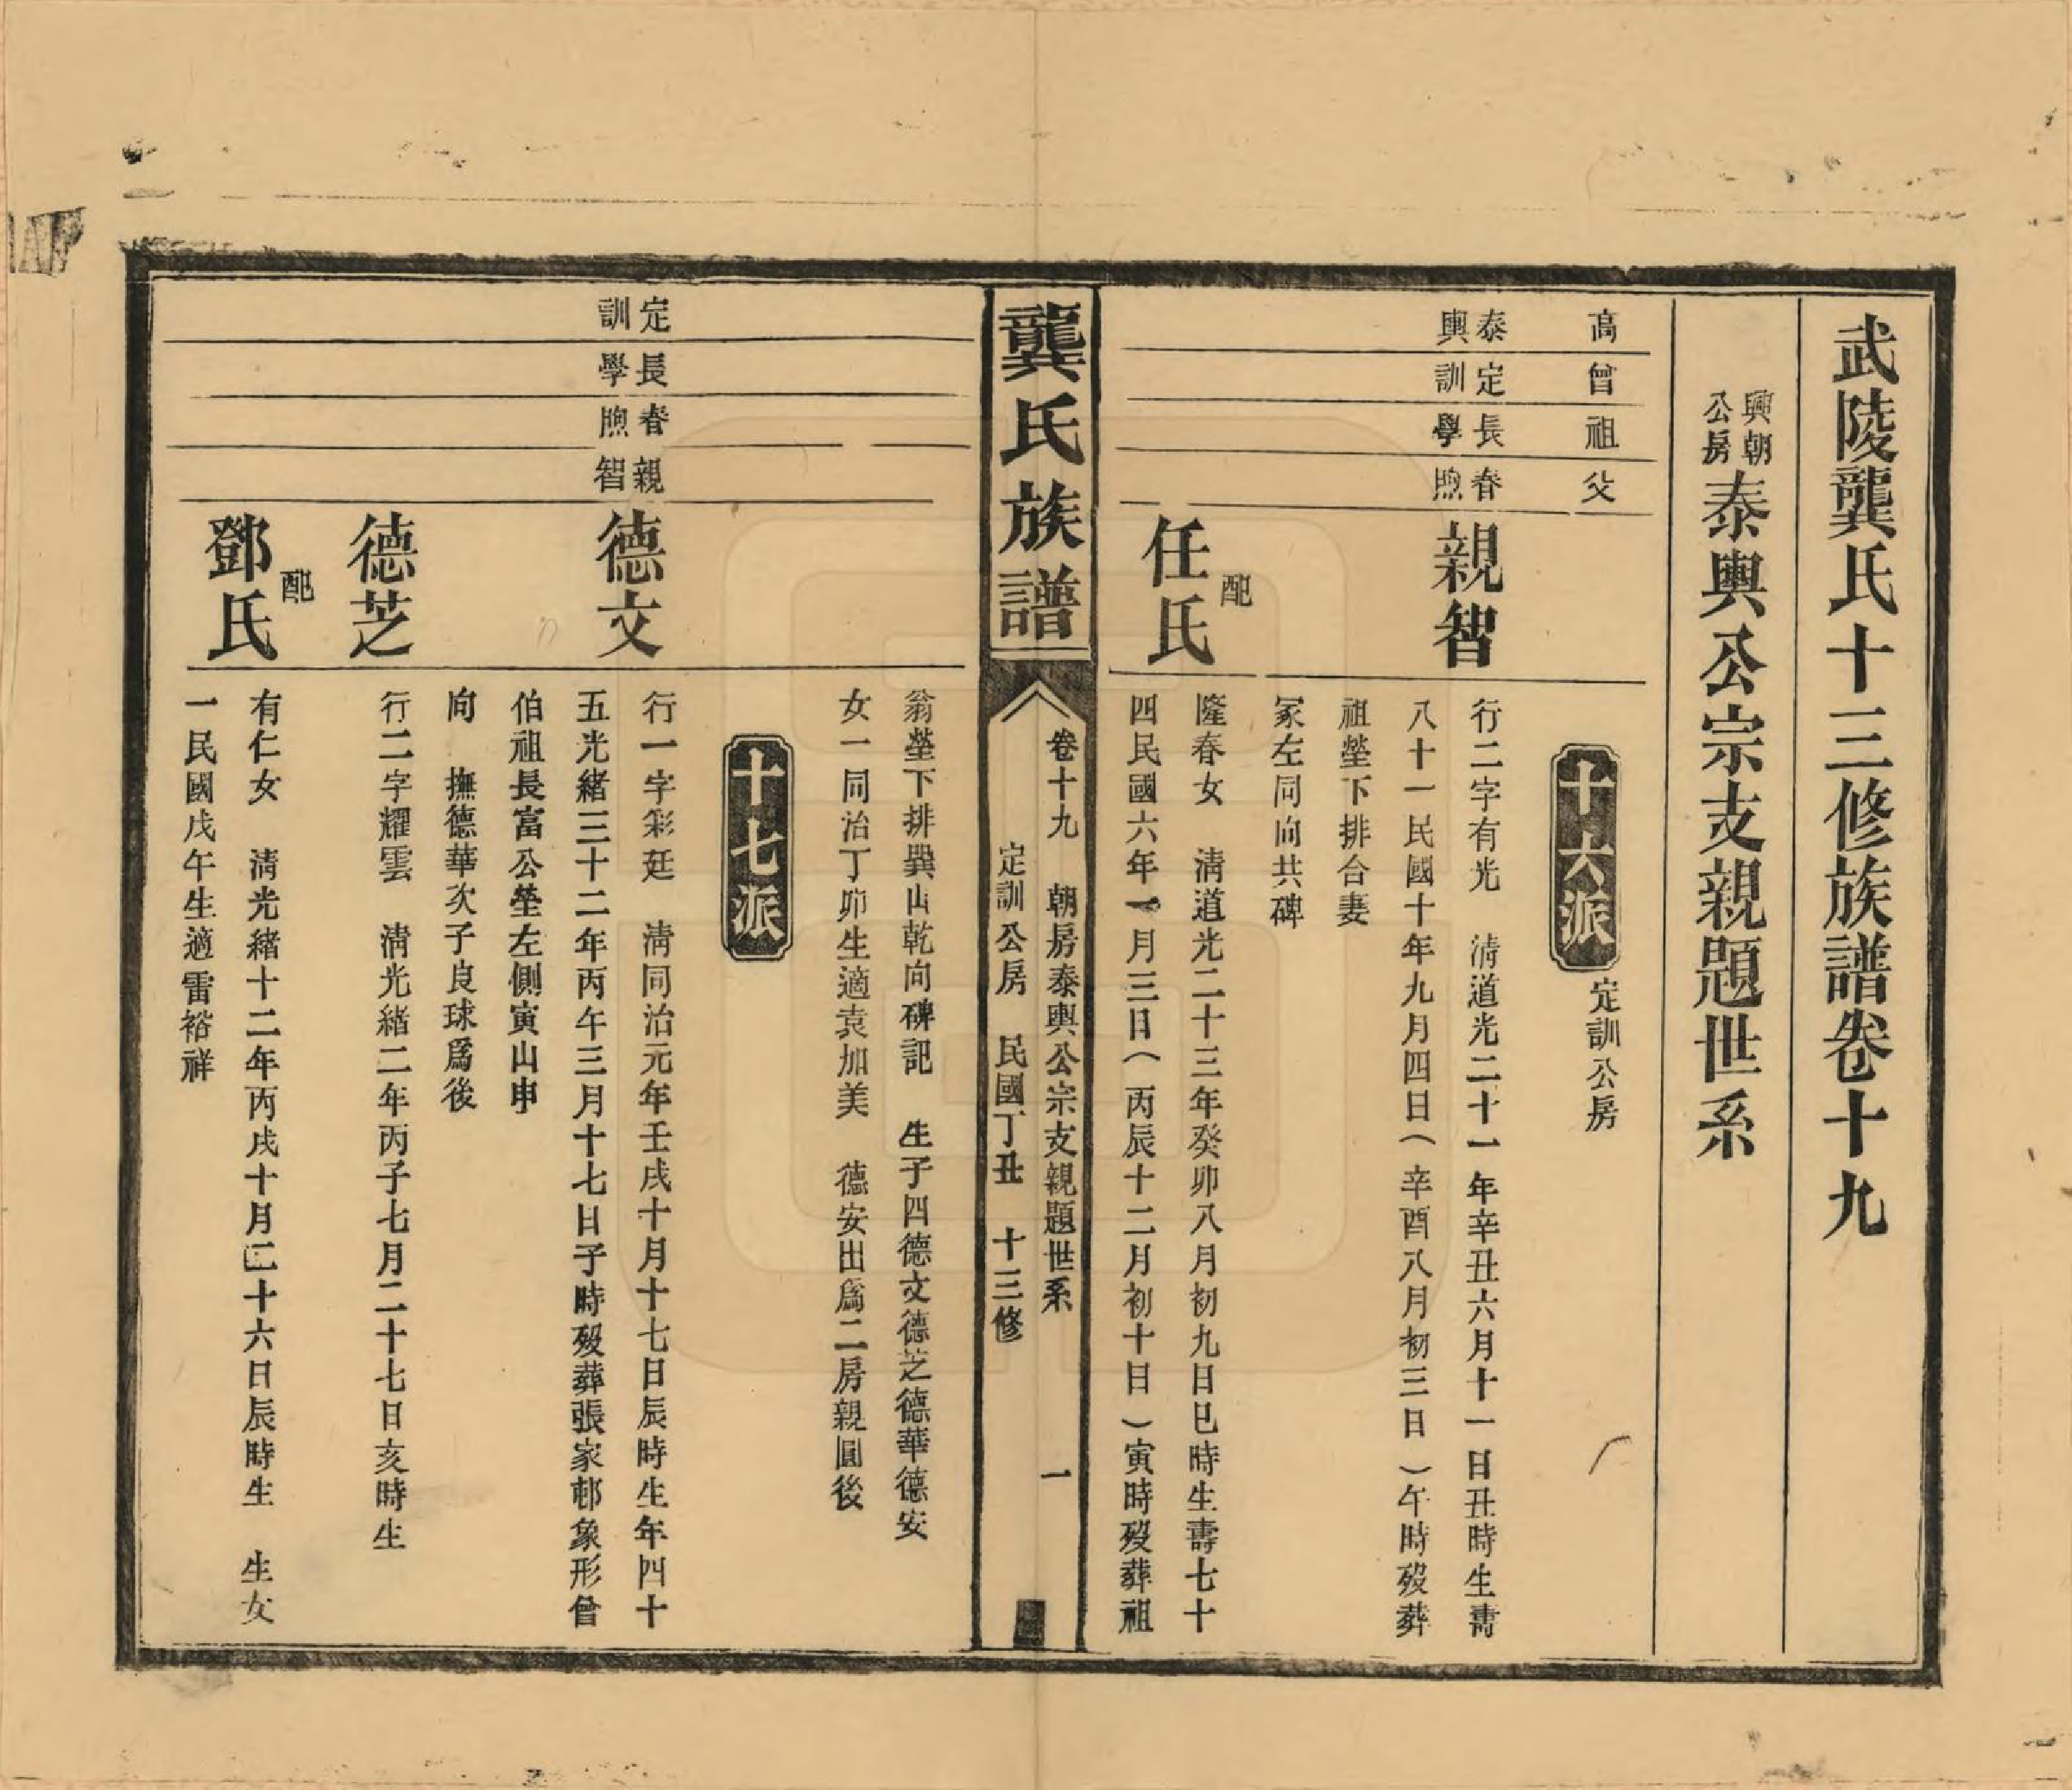 武陵龔氏十三修族譜卷十九
興朝公房泰輿公宗支親題世系
高
曾
祖
父
十六派 定訓公房
泰輿
定訓
長學
春煦
親智
行二字有光 清道光二十一年辛丑六月十一日丑時生壽
八十一民國十年九月四日(辛酉八月初三日)午時歿葬
祖塋下排合妻
冢左同向共碑
配
任氏
隆春女 清道光二十三年癸卯八月初九日巳時生壽七十
四民國六年一月三日(丙辰十二月初十日)寅時歿葬祖
龔氏族譜
卷十九 朝房泰輿公宗支親題世系 一
定訓公房 民國丁丑 十三修
翁塋下排巽山乾向碑記 生子四德文德芝德華德安
女一同治丁卯生適袁加美 德安出爲二房親圓後
十七派
定訓
長學
春煦
親智
德文
行一字彩廷 清同治元年壬戌十月十七日辰時生年四十
五光緒三十二年丙午三月十七日子時歿葬張家邨象形曾
伯祖長富公塋左側寅山申
向 撫德華次子良球爲後
德芝
行二字耀雲 清光緒二年丙子七月二十七日亥時生
配
鄧氏
有仁女 清光緒十二年丙戌十月二十六日辰時生 生女
一民國戊午生適雷裕祥